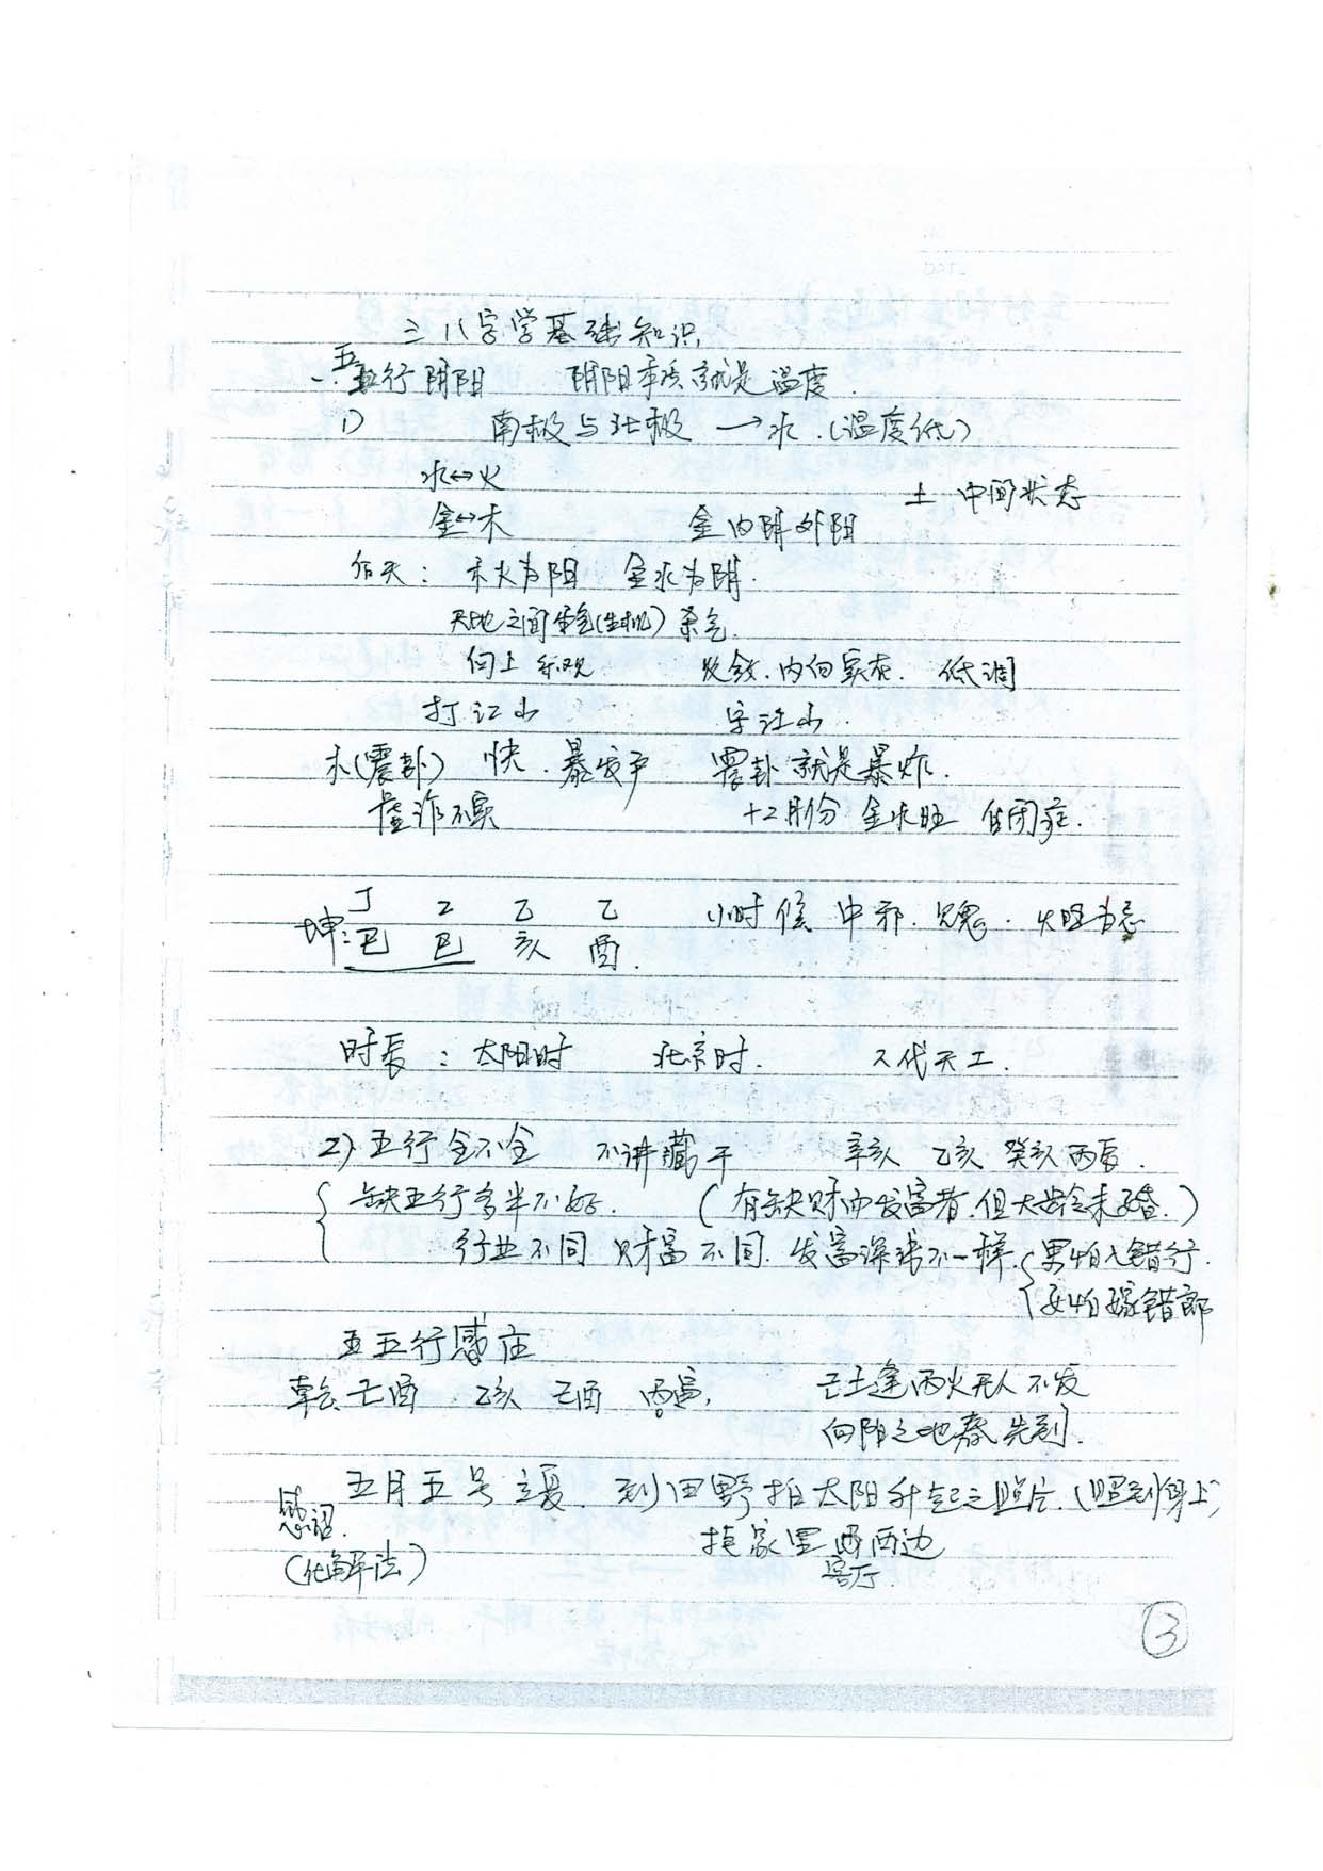 三 八字学基础知识
一.五行阴阳 阴阳本质就是温度.
1) 南极与北极 →水.(温度低)
水↔火
土 中间状态
金↔木 金内阴外阳
后天: 木火为阳 金水为阴.
天地之间生气(生机) 杀气.
向上 乐观 收敛.内向实在. 低调
打江山 守江山
木(震卦) 快.暴发户 震卦就是暴炸.
虚诈不实 十2月份 金水旺 自闭症.
丁 乙 乙 乙 小时候 中邪.见鬼. 火旺为忌
坤:巳 巳 亥 酉.
时辰:太阳时 北京时. 人代天工.
2) 五行全不全 不讲藏干 辛亥 乙亥 癸亥 丙辰.
缺五行多半不好. (有缺财而发富者.但大龄未婚.)
行业不同 财富不同. 发富深浅不一样. 男怕入错行.
女怕嫁错郎
五五行感应
乾:己酉 乙亥 己酉 丙寅, 己土逢丙火无人不发
向阳之地春先到.
五月五号立夏. 到田野拍太阳升起之照片.(照到身上)
感召. 挂家里 两边
(化解法) 客厅
3